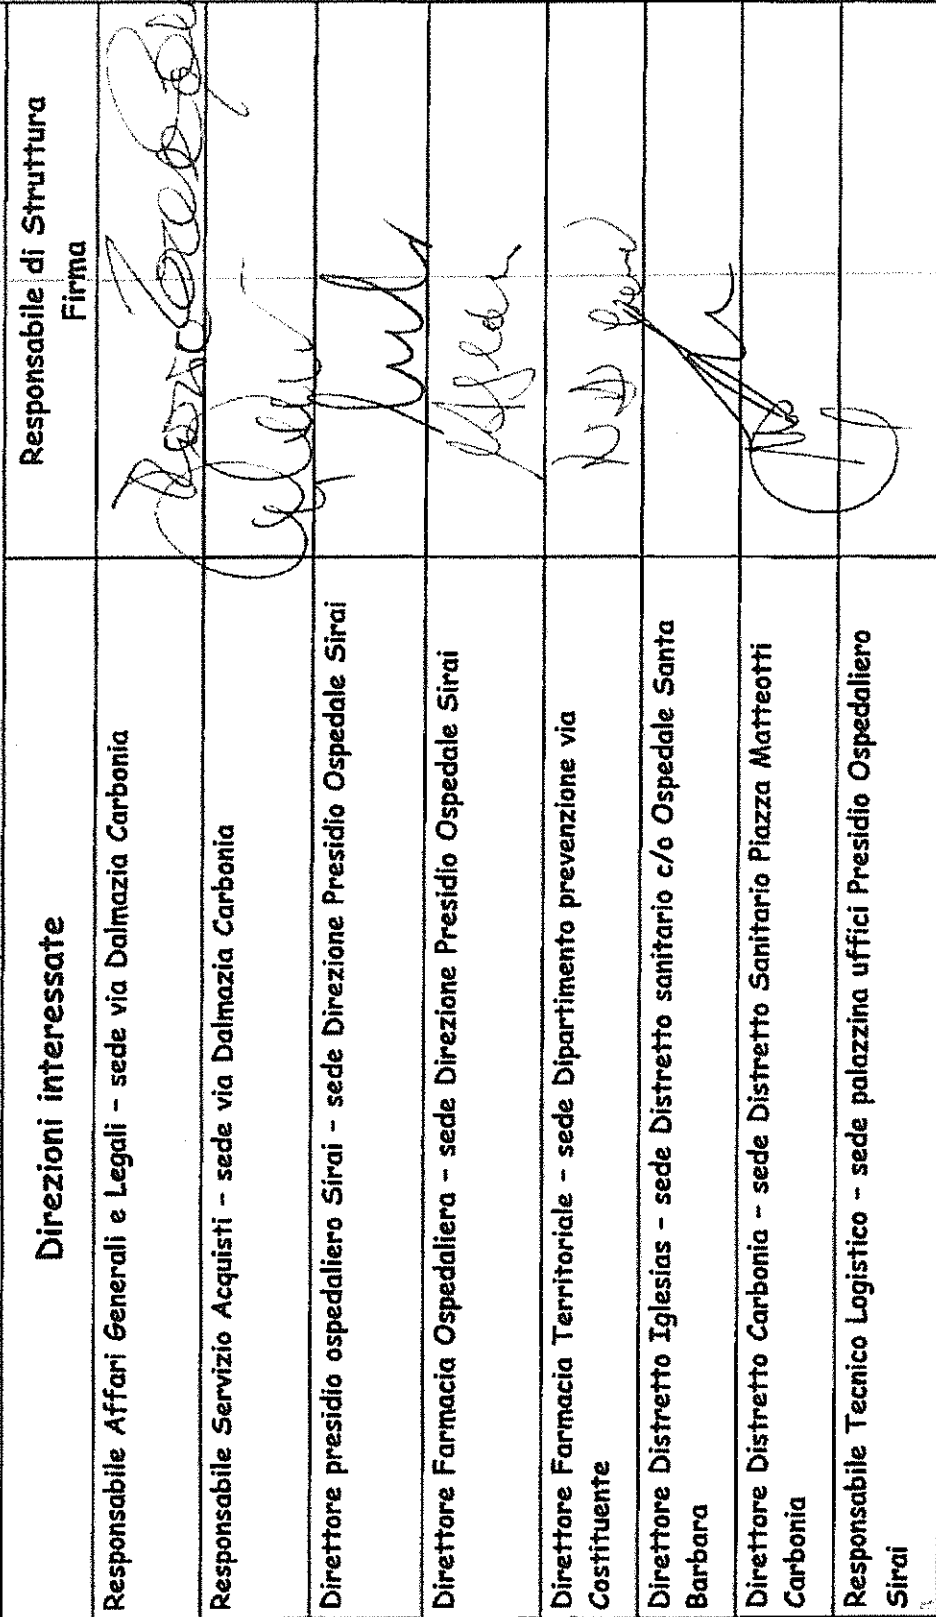 Direzioni interessate
Responsabile di Struttura
Firma
Responsabile Affari Generali e Legali – sede via Dalmazia Carbonia
Responsabile Servizio Acquisti – sede via Dalmazia Carbonia
Direttore presidio ospedaliero Sirai – sede Direzione Presidio Ospedale Sirai
Direttore Farmacia Ospedaliera – sede Direzione Presidio Ospedale Sirai
Direttore Farmacia Territoriale – sede Dipartimento prevenzione via
Costituente
Direttore Distretto Iglesias – sede Distretto sanitario c/o Ospedale Santa
Barbara
Direttore Distretto Carbonia – sede Distretto Sanitario Piazza Matteotti
Carbonia
Responsabile Tecnico Logistico – sede palazzina uffici Presidio Ospedaliero
Sirai